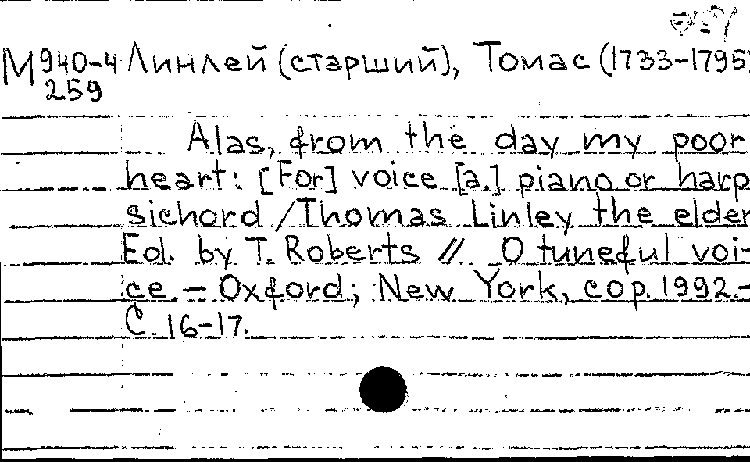 М940-4 Линлей (старший), Томас (1733-1795)
259
Alas, from the day my poor
heart: [For] voice [a.] piano or harp
sichord / Thomas Linley the elder
Ed. by T. Roberts // O tuneful voi-
ce. – Oxford; New York, cop. 1992.–
С. 16-17.